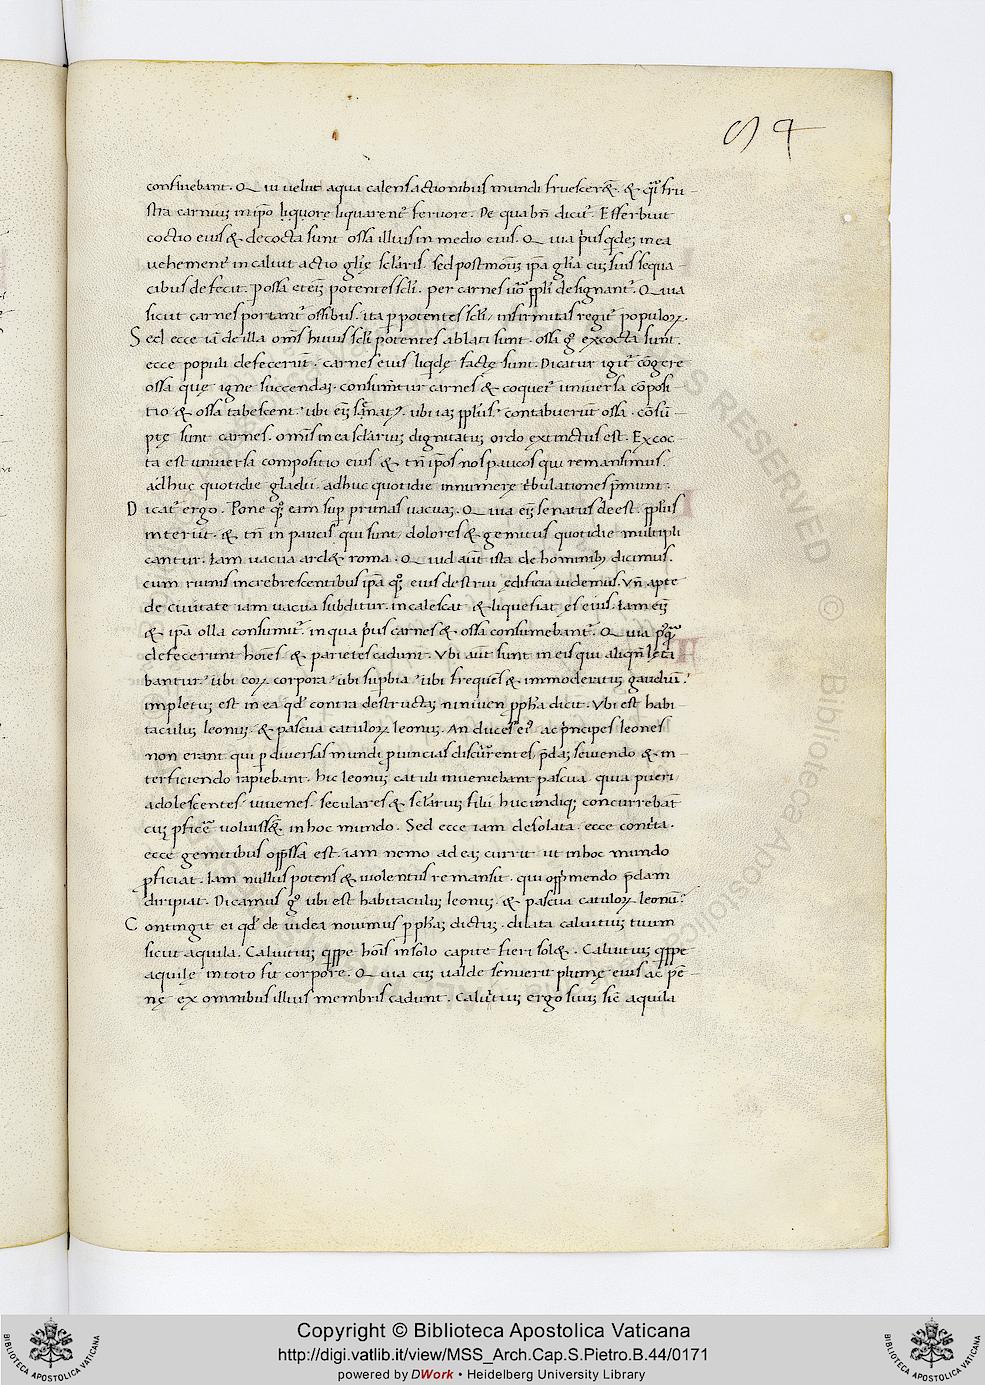 continebant. Qui uelut aqua calens actionibus mundi feruescer&. & qͣsi fru-
sta carniuʒ in ip̄o liquore liquarent᷑ feruore. De qua bn̄ dicit᷑. Efferbuit
coctio eius & decocta sunt ossa illius in medio eius. Quia p̓us qͥdeʒ in ea
uehement᷑ incaluit actio glīę sclāris. sed postmoduʒ ip̄a glīa cuʒ suis sequa-
cibus defecit. Per ossa eteniʒ potentes sclī. per carnes uͦo ppl̄i designant᷑. Quia
sicut carnes portant᷑ ossibus. ita ꝑ potentes sclī, infirmitas regit᷑ populoꝝ.
Sed ecce iā de illa om̄s huius sclī potentes ablati sunt. ossa gͦ excocta sunt.
ecce populi defecerūt. carnes eius liqͥdę factę sunt. Dicatur igit᷑ cōgere
ossa quę igne succendaʒ. consumēt᷑ carnes & coquet᷑ uniuersa cōposi-
tio & ossa tabescent. ubi eniʒ senatꝰ. ubi iaʒ ppl̄us? contabuerūt ossa. cōsū-
ptę sunt carnes. omis in ea sclāriuʒ dignitatuʒ ordo extinctus est. Excoc-
ta est uniuersa compositio eius & tn̄ ip̄os nos paucos qui remansimus.
adhuc quotidie gladii. adhuc quotidie innumerę tͥbulationes p̄munt.
Dicat᷑ ergo. Pone qͦqꝫ eam sup prunas uacuaʒ. Quia eniʒ senatus deest. ppl̄us
interiit. & tn̄ in paucis qui sunt, dolores & gemitus quotidie multipli
cantur. Iam uacua ard& roma. Quid aūt ista de hominibꝫ dicimus.
cum ruinis increbrescentibus ip̄a qͦqꝫ eius destrui ędificia uidemus. Vn̄ apte
de ciuitate iam uacua subditur. incalescat & liquefiat ęs eius. Iam eniʒ
& ip̄a olla consumit᷑. in qua p̓us carnes & ossa consumebant᷑. Quia pͦqͣ̄
defecerunt hoīes & parietes cadunt. Vbi aūt sunt in eis qui aliqn̄ lęta
bantur? ubi eoꝝ corpora? ubi supbia? ubi frequēs & immoderatuʒ gaudiū?
impletuʒ est in ea qd̓ contra destructaʒ niniuen ꝓpha dicit. Vbi est habi
taculuʒ leonuʒ. & pascua catuloꝝ leonuʒ. An duces eiꝰ ac pͥncipes leones
non erant qui ꝑ diuersas mundi prouincias discurrentes, p̄daʒ seuiendo & in-
terficiendo rapiebant. hic leonuʒ catuli inueniebant pascua. quia pueri
adolescentes, iuuenes, seculares & sclāriuʒ filii huc undiqꝫ concurrebāt
cuʒ ꝓficē uoluiss& in hoc mundo. Sed ecce iam desolata. ecce contͥta.
ecce gemitibus opp̄ssa est. iam nemo ad eaʒ currit ut in hoc mundo
ꝓficiat. Iam nullus potens & uiolentus remansit. qui opp̄mendo p̄dam
diripiat. Dicamus gͦ ubi est habitaculuʒ leonuʒ. & pascua catuloꝝ leonū?
Contingit ei qd̓ de iudea nouimus ꝑ ꝓphaʒ dictuʒ. dilata caluitium tuum
sicut aquila. Caluitiuʒ qͥppe hoīs in solo capite fieri sol&. Caluitiuʒ qͥppe
aquilę in toto fit corpore. Quia cuʒ ualde senuerit plumę eius ac pē-
nę ex omnibus illius membris cadunt. Caluitiuʒ ergo suuʒ sic̄ aquila
Copyright © Biblioteca Apostolica Vaticana
http://digi.vatlib.it/view/MSS_Arch.Cap.S.Pietro.B.44/0171
powered by DWork • Heidelberg University Library